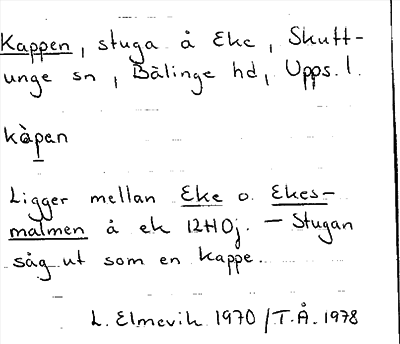 Kappen, stuga å Eke, Skutt-
unge sn, Bälinge hd, Upps. l.
kàpan
Ligger mellan Eke o. Ekes-
malmen å ek 12H0j. – Stugan
såg ut som en kappe.
L. Elmevik 1970 / T.Å. 1978